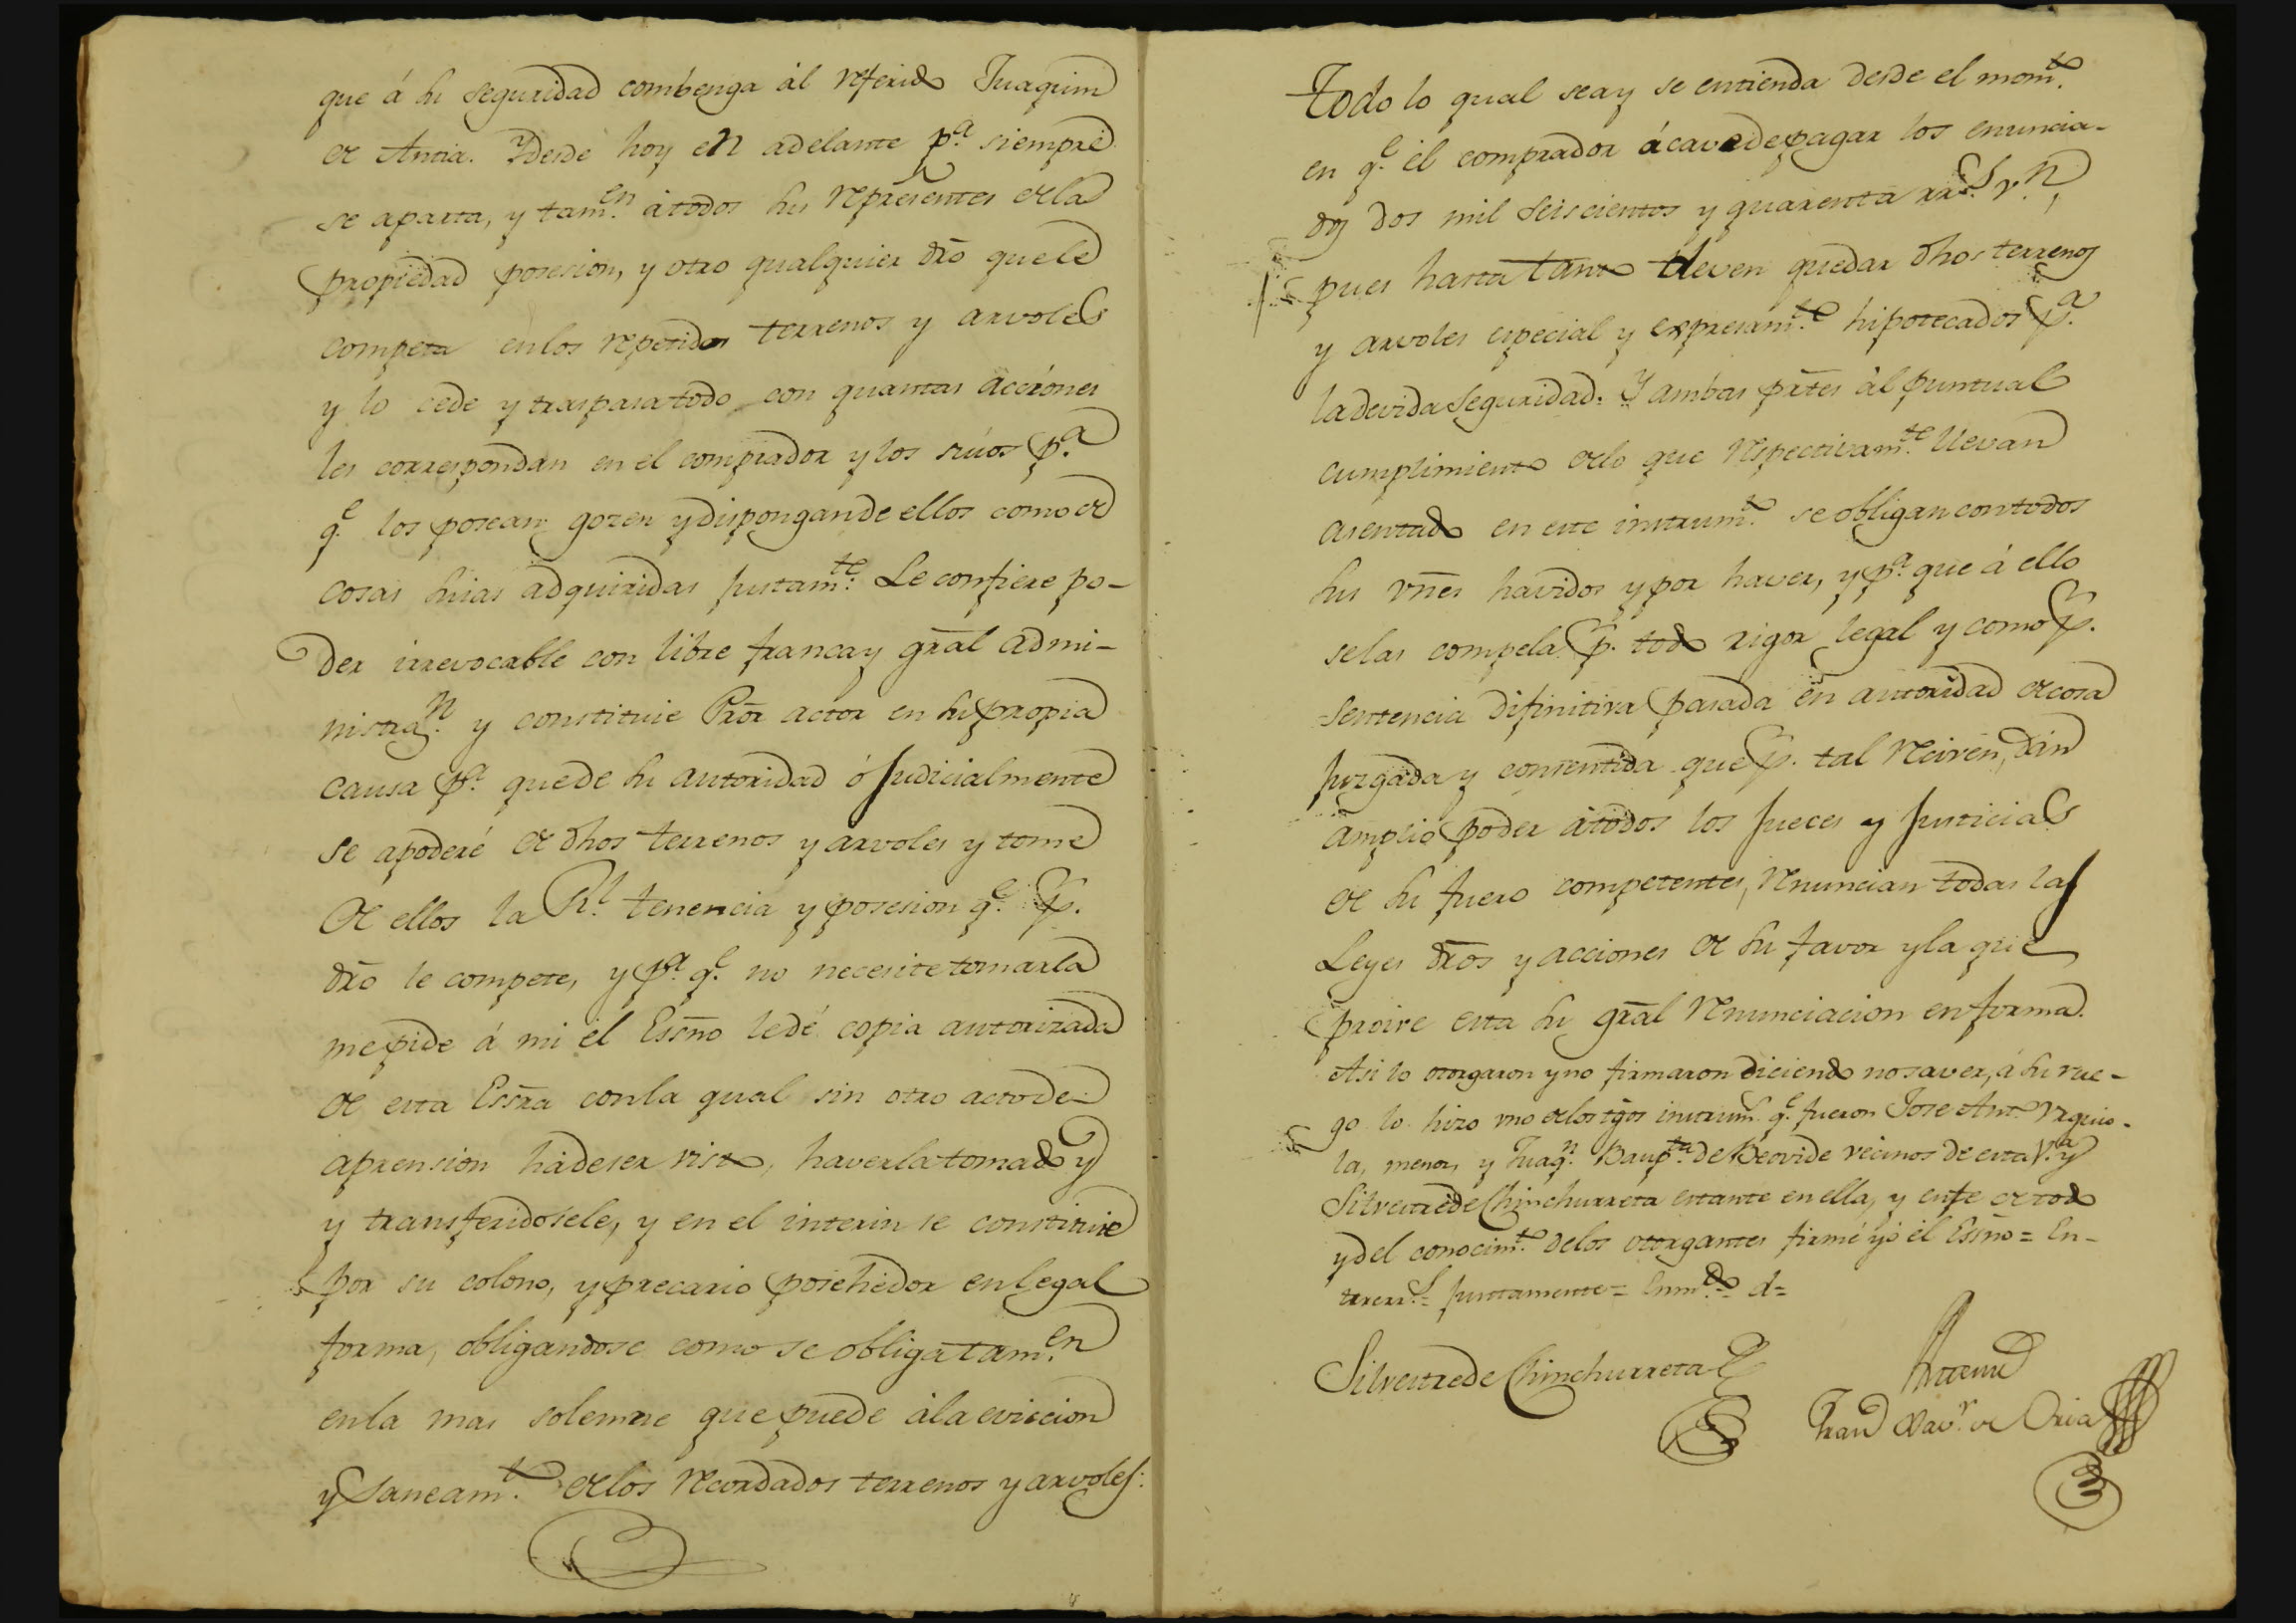 que á su seguridad combenga ál referido Juaquin
de Antia. Ydesde hoy en adelante p.ª siempre
se aparta, y tam.en átodos sus représentes dela
propiedad posesion, y otro qualquier drō quele
competa enlos repetidos terrenos y arvoles
y lo cede y traspasatodo con quantas acciónes
les correspondan en el comprador y los súos p.ª
q.e los posean gozen ydispongande ellos como de
cosas suias adquiridas justam.te Le confiere po-
der irrevocable con libre francay grāl admi-
nistraç.n y constituie Prōr actor en supropia
causa p.ª quede su autoridad ó judicialmente
se apoderé de dhos terrenos y arvoles y tome
de ellos la R.l tenencia y posesion q.e p.
drō le compete, y p.ª q.e no necesitetomarla
mepide á mi él Essn̄o ledé copia autorizada
de esta Essrā conla qual sin otro actode
aprension hádeser visto, haverlatomado y
y transferidosele, y en el interin se constituie
por su colono, yprecario posehedor enlegal
forma, obligandose como se obligatam.en
enla mas solemne quepuede álaeviccion
y Saneam.to delos recordados terrenos y arvoles:
Todo lo qual seay se entienda desde el mom.to
en q.e él comprador ácavedepagar los enuncia-
dos dos mil seiscientos y quarenta rr.s v.n,
pues hasta tanto deven quedar dhos terrenos
y arvoles especial y expresam.te hipotecados p.ª
ladevidaseguridad: Y ambas prtēs ál puntual
cumplimiento delo que respectivam.te llevan
asentado en este instrum.to se obligan contodos
sus vnēs havidos ypor haver, yp.ª que á ello
selas compela p. todo rigor legal y como p.
sentencia difinitiva pasada én autoridad decosa
juzgada y consentida que p. tal reciven, dán
amplio poder átodos los jueces y justicias
de su fuero competentes, renuncian todas las
Leyes drōs y acciones de su favor yla que
proive esta su grāl renunciacion enforma.
Asi lo otorgaron yno firmaron diciendo nosaver, á su rue-
go lo hizo vno delos tgōs instrum.s q.e fueron Jose Ant.o Vrquio-
la, menor, y Juaq.n Baup.ta de Beovide vecinos de esta V.ª y
Silvestrede Chinchurreta estante en ella, y enfe de todo
ydel conocim.to delos otorgantes firmé yó él Essn̄o = En-
trerr.s= juntamente= Enm.do= d=
Silvestrede Chinchurreta
Antemi
Fran.co Xav.r de Oria